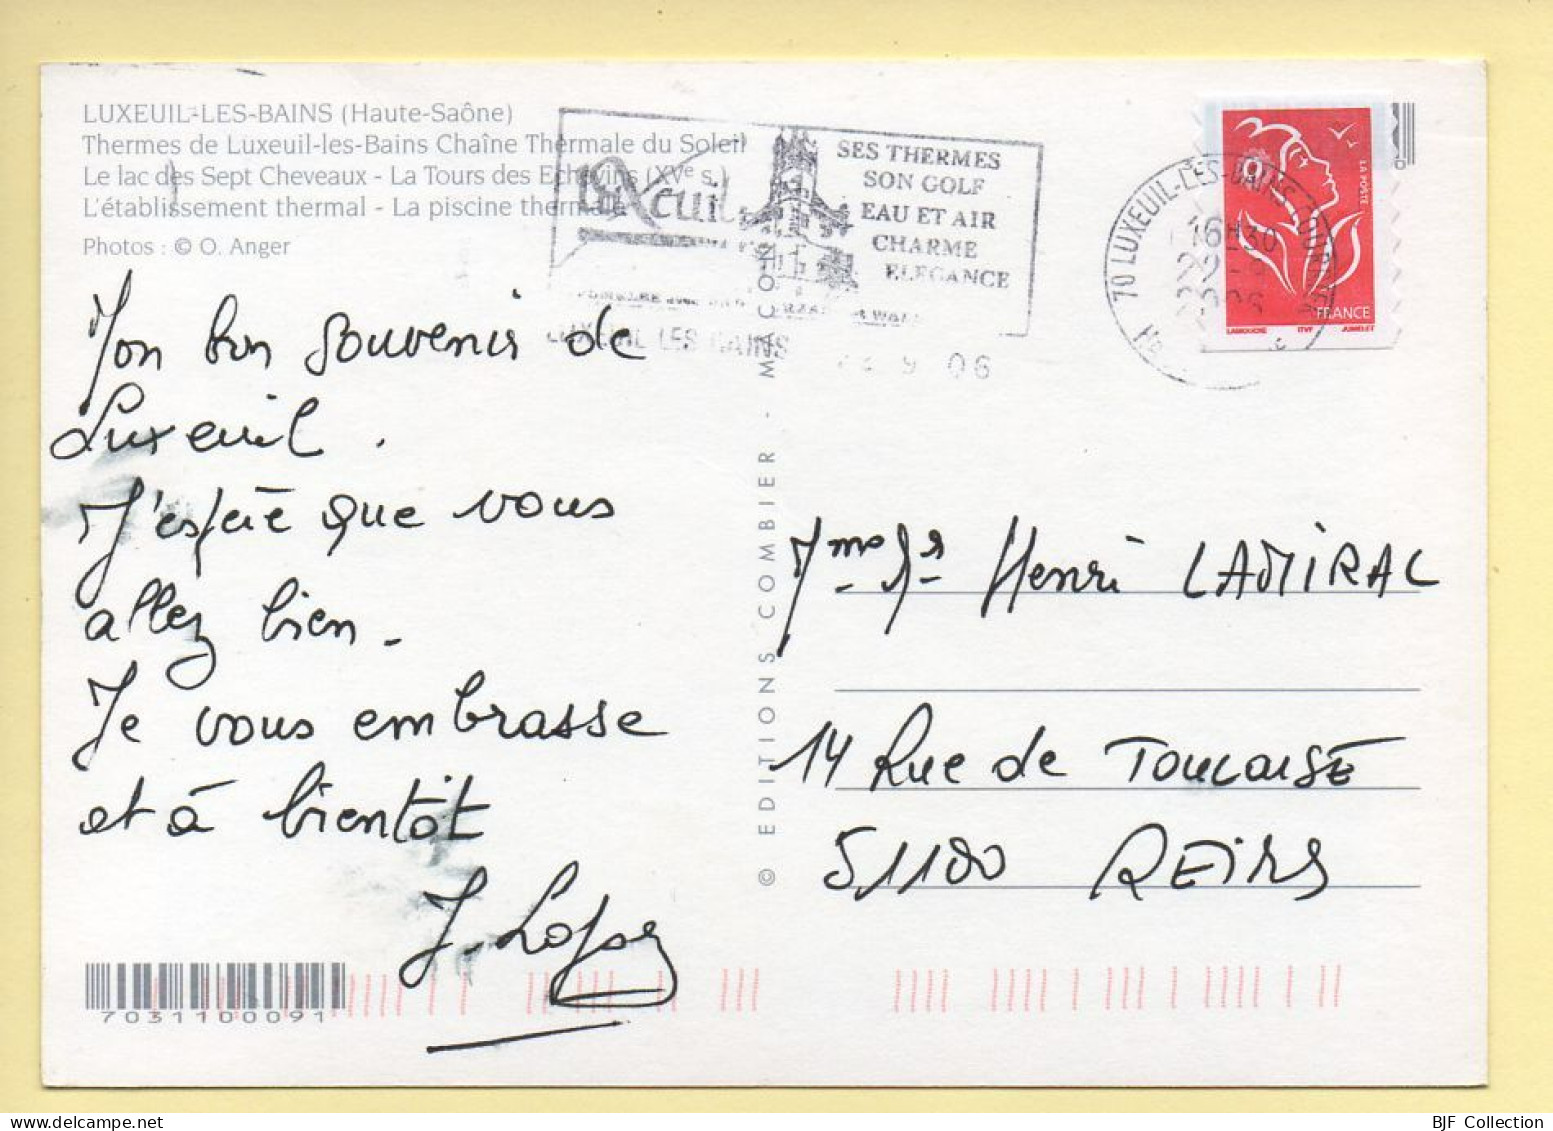 LUXEUIL-LES-BAINS (Haute-Saône)
Thermes de Luxeuil-les-Bains Chaîne Thermale du Soleil
Le lac des Sept Cheveaux - La Tours des Echevins (XVe s.)
L'établissement thermal - La piscine thermale
Photos : © O. Anger
Luxeuil
SES THERMES
SON GOLF
EAU ET AIR
CHARME
ELEGANCE
LUXEUIL LES BAINS
9 06
70 LUXEUIL-LES-BAINS
16H30
22-9
2006
LA POSTE
FRANCE
LAMOUCHE ITVF JUMELET
Mon bon souvenir de
Luxeuil.
J'espère que vous
allez bien.
Je vous embrasse
et à bientôt
© EDITIONS COMBIER - MACON
Henri LAMIRAL
14 Rue de TOULOUSE
51100 REIMS
7031100091
BJF Collection